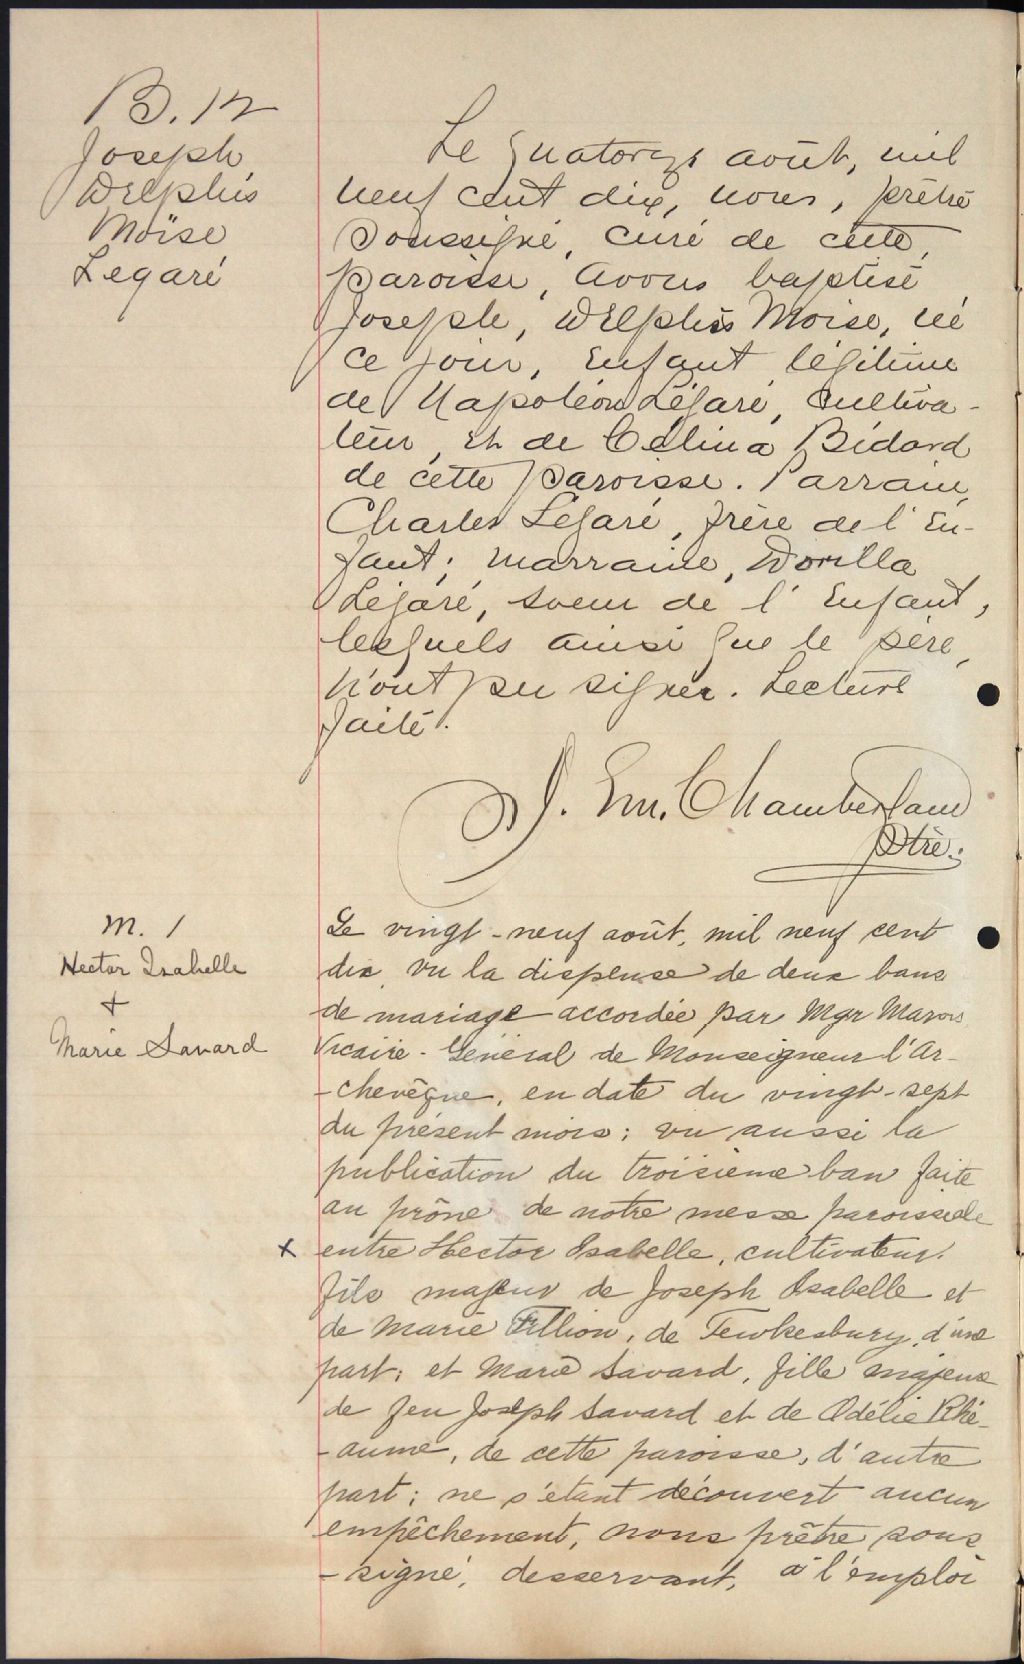 B. 12
Joseph
Delphis
Moïse
Legaré
Le quatorze août, mil
neuf cent dix, nous, prêtre
soussigné, curé de cette
paroisse, avons baptisé
Joseph, Delphis Moïse, né
ce jour, enfant légitime
de Napoléon Légaré, cultiva-
teur, et de Célina Bédard
de cette paroisse. Parrain,
Charles Légaré, frère de l'en-
fant; marraine, Dorilla
Légaré, soeur de l'enfant,
lesquels ainsi que le père,
n'ont pu signer. Lecture
faite.
J. Em. Chamberland
Ptre.
M. 1
Hector Isabelle
+
Marie Savard
Le vingt-neuf août, mil neuf cent
dix, vu la dispense de deux bans
de mariage accordée par Mgr Marois
Vicaire-Général de Monseigneur l'Ar-
-chevêque, en date du vingt-sept
du présent mois; vu aussi la
publication du troisième ban faite
au prône de notre messe paroissiale
x entre Hector Isabelle, cultivateur,
fils majeur de Joseph Isabelle et
de Marie Fillion, de Tewkesbury, d'une
part; et Marie Savard, fille majeure
de feu Joseph Savard et de Odélie Rhé-
-aume, de cette paroisse, d'autre
part; ne s'étant découvert aucun
empêchement, nous prêtre sous
-signé, desservant, à l'emploi